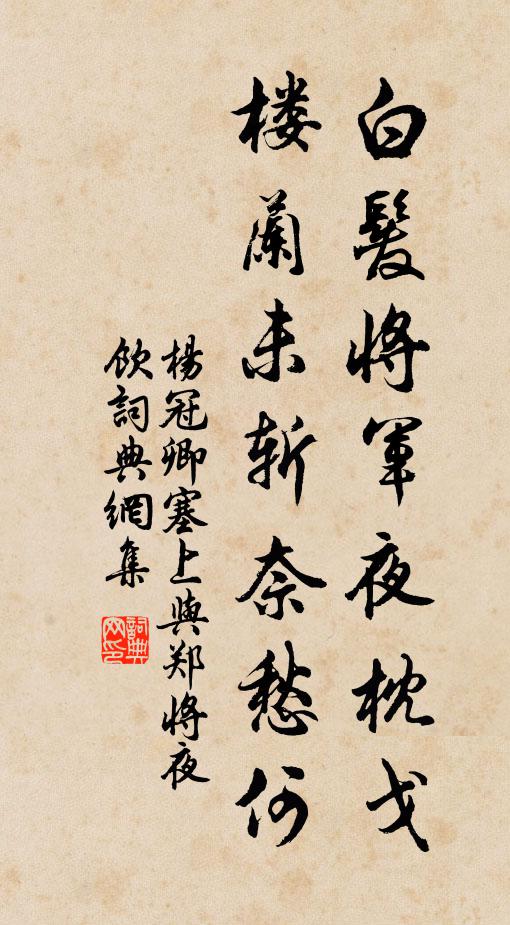 白髮將軍夜枕戈
楼蘭未斬奈愁何
楊冠卿塞上與郑將夜
飲詞典網集
詞典
网印